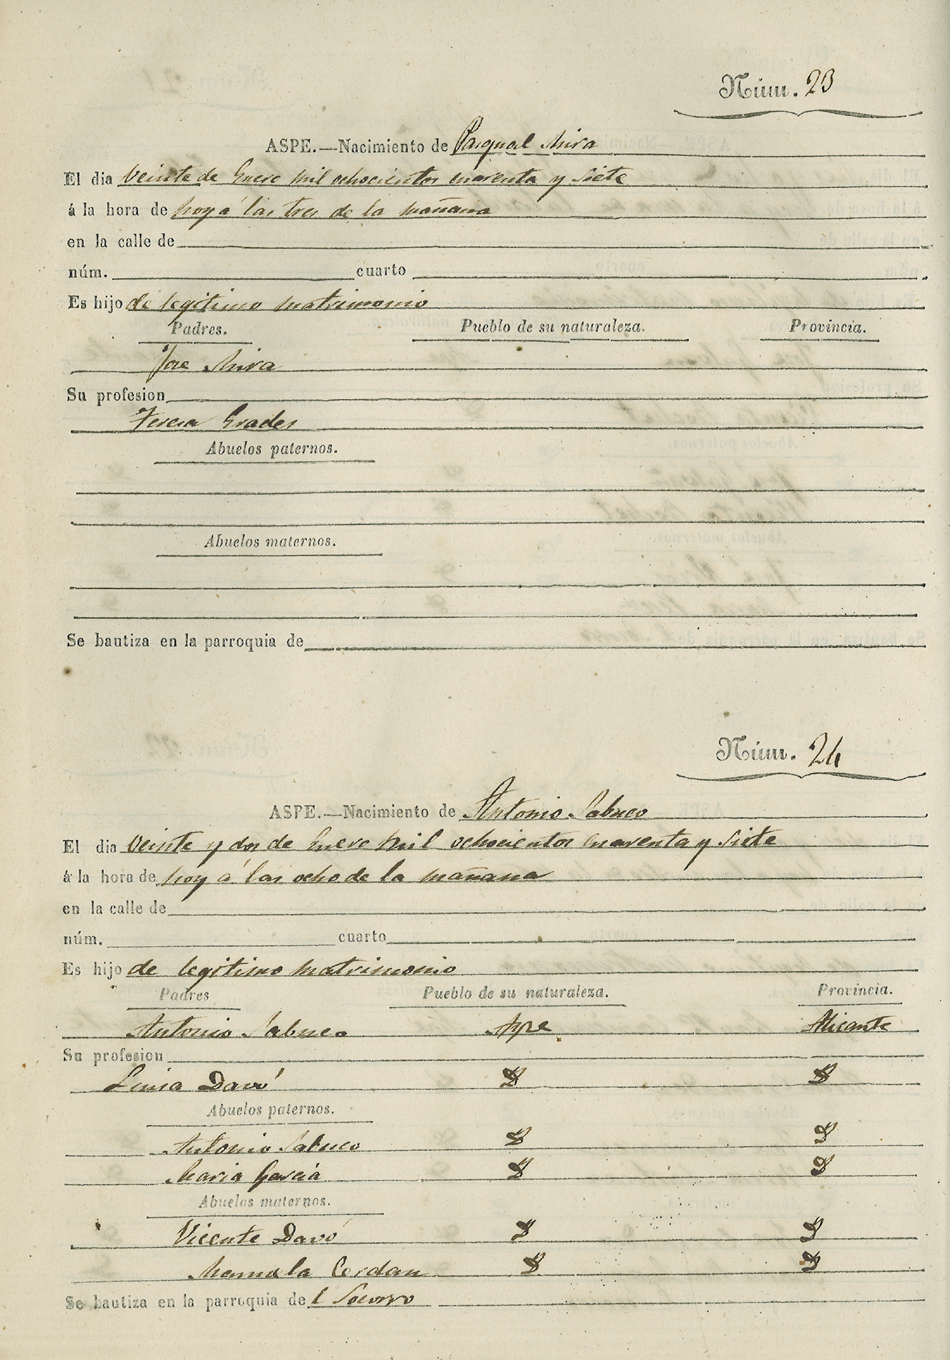 Núm. 23
ASPE.—Nacimiento de Pasqual Mira
El dia veinte de Enero mil ochocientos cuarenta y siete
á la hora de hoy á las tres de la mañana
en la calle de
núm. cuarto
Es hijo de legitimo matrimonio
Padres. Pueblo de su naturaleza. Provincia.
Jose Mira
Su profesion
Teresa
Abuelos paternos.
Abuelos maternos.
Se bautiza en la parroquia de
Núm. 24
ASPE.—Nacimiento de Antonio Sabuco
El dia veinte y dos de Enero mil ochocientos cuarenta y siete
á la hora de hoy á las ocho de la mañana
en la calle de
núm. cuarto
Es hijo de legitimo matrimonio
Padres Pueblo de su naturaleza. Provincia.
Antonio Sabuco Aspe Alicante
Su profesion
Davó
Abuelos paternos.
Antonio Sabuco
Maria Garcia
Abuelos maternos.
Vicente Davó
Manuela Cerdan
Se bautiza en la parroquia de l Socorro